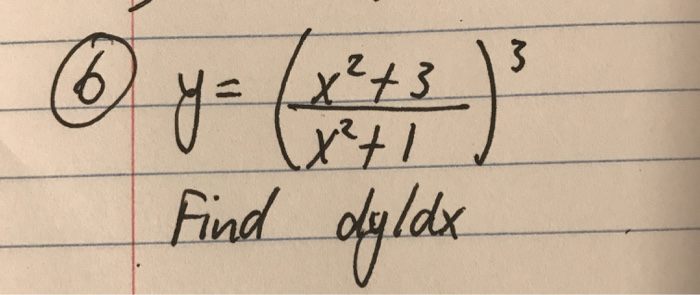 ⑥ y = ( (x² + 3) / (x² + 1) )³
Find dy/dx